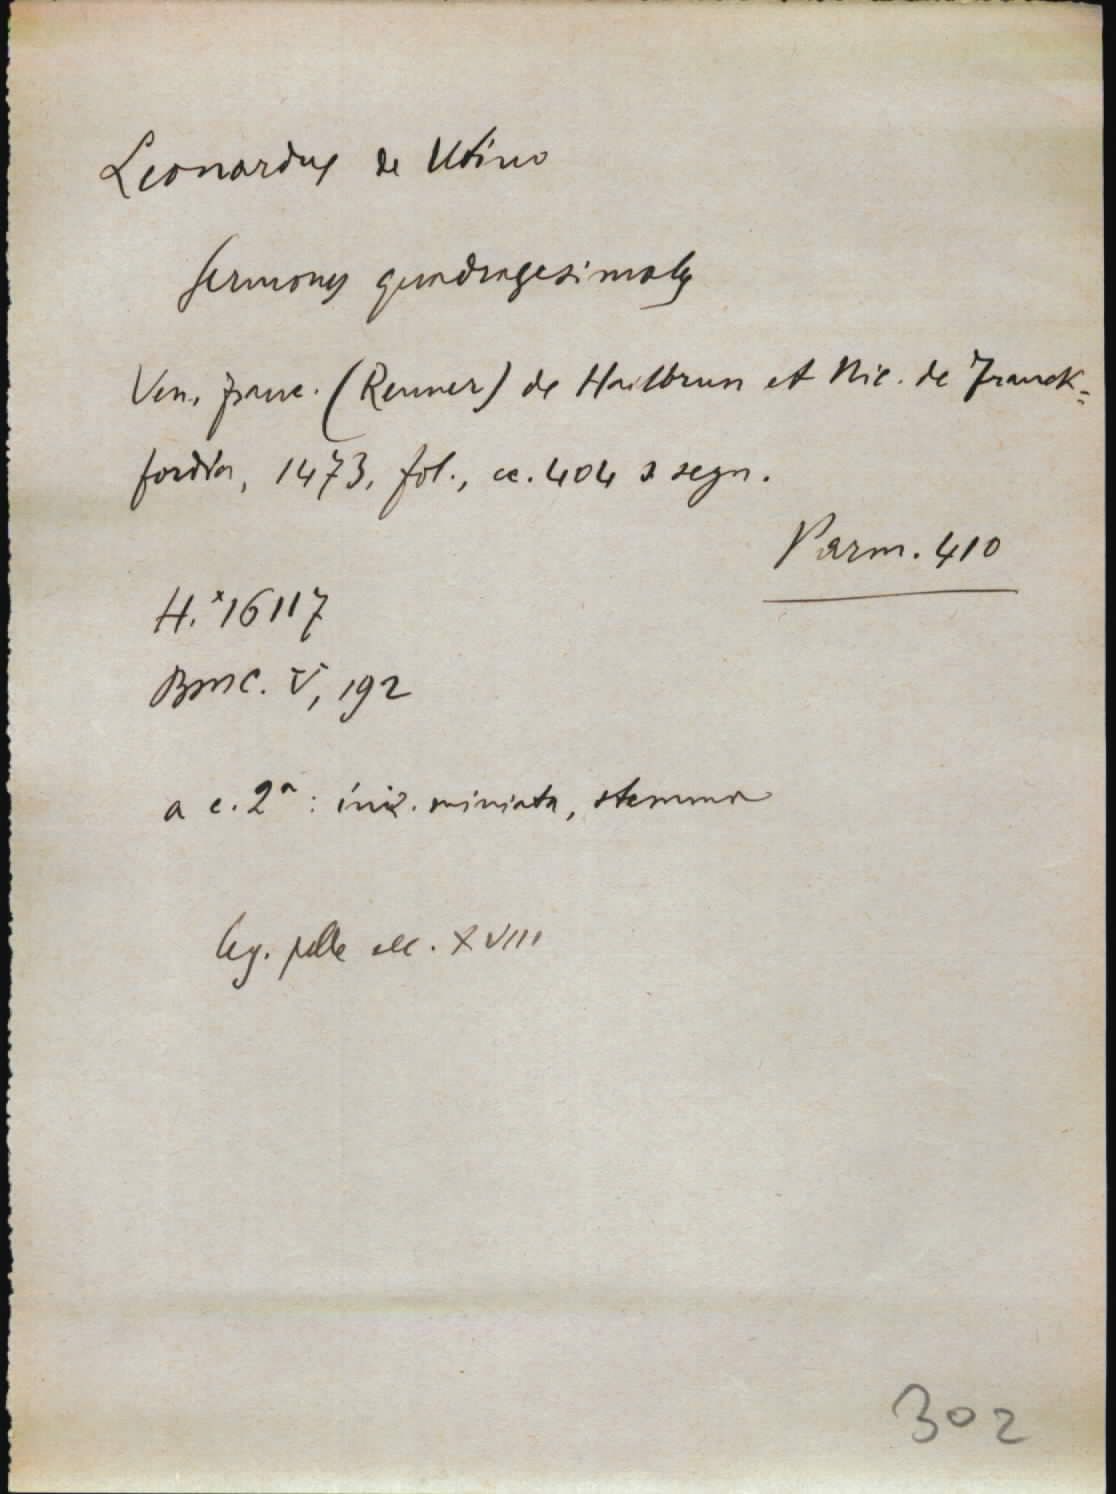 Leonardus de Utino
Sermones quadragesimales
Ven., Franc. (Renner) de Hailbrun et Nic. de Franck=
fordia, 1473, fol., cc. 404 s segn.
Parm. 410
H. *16117
BMC. V, 192
a c. 2ª: iniz. miniata, stemma
leg. pelle sec. XVIII
302